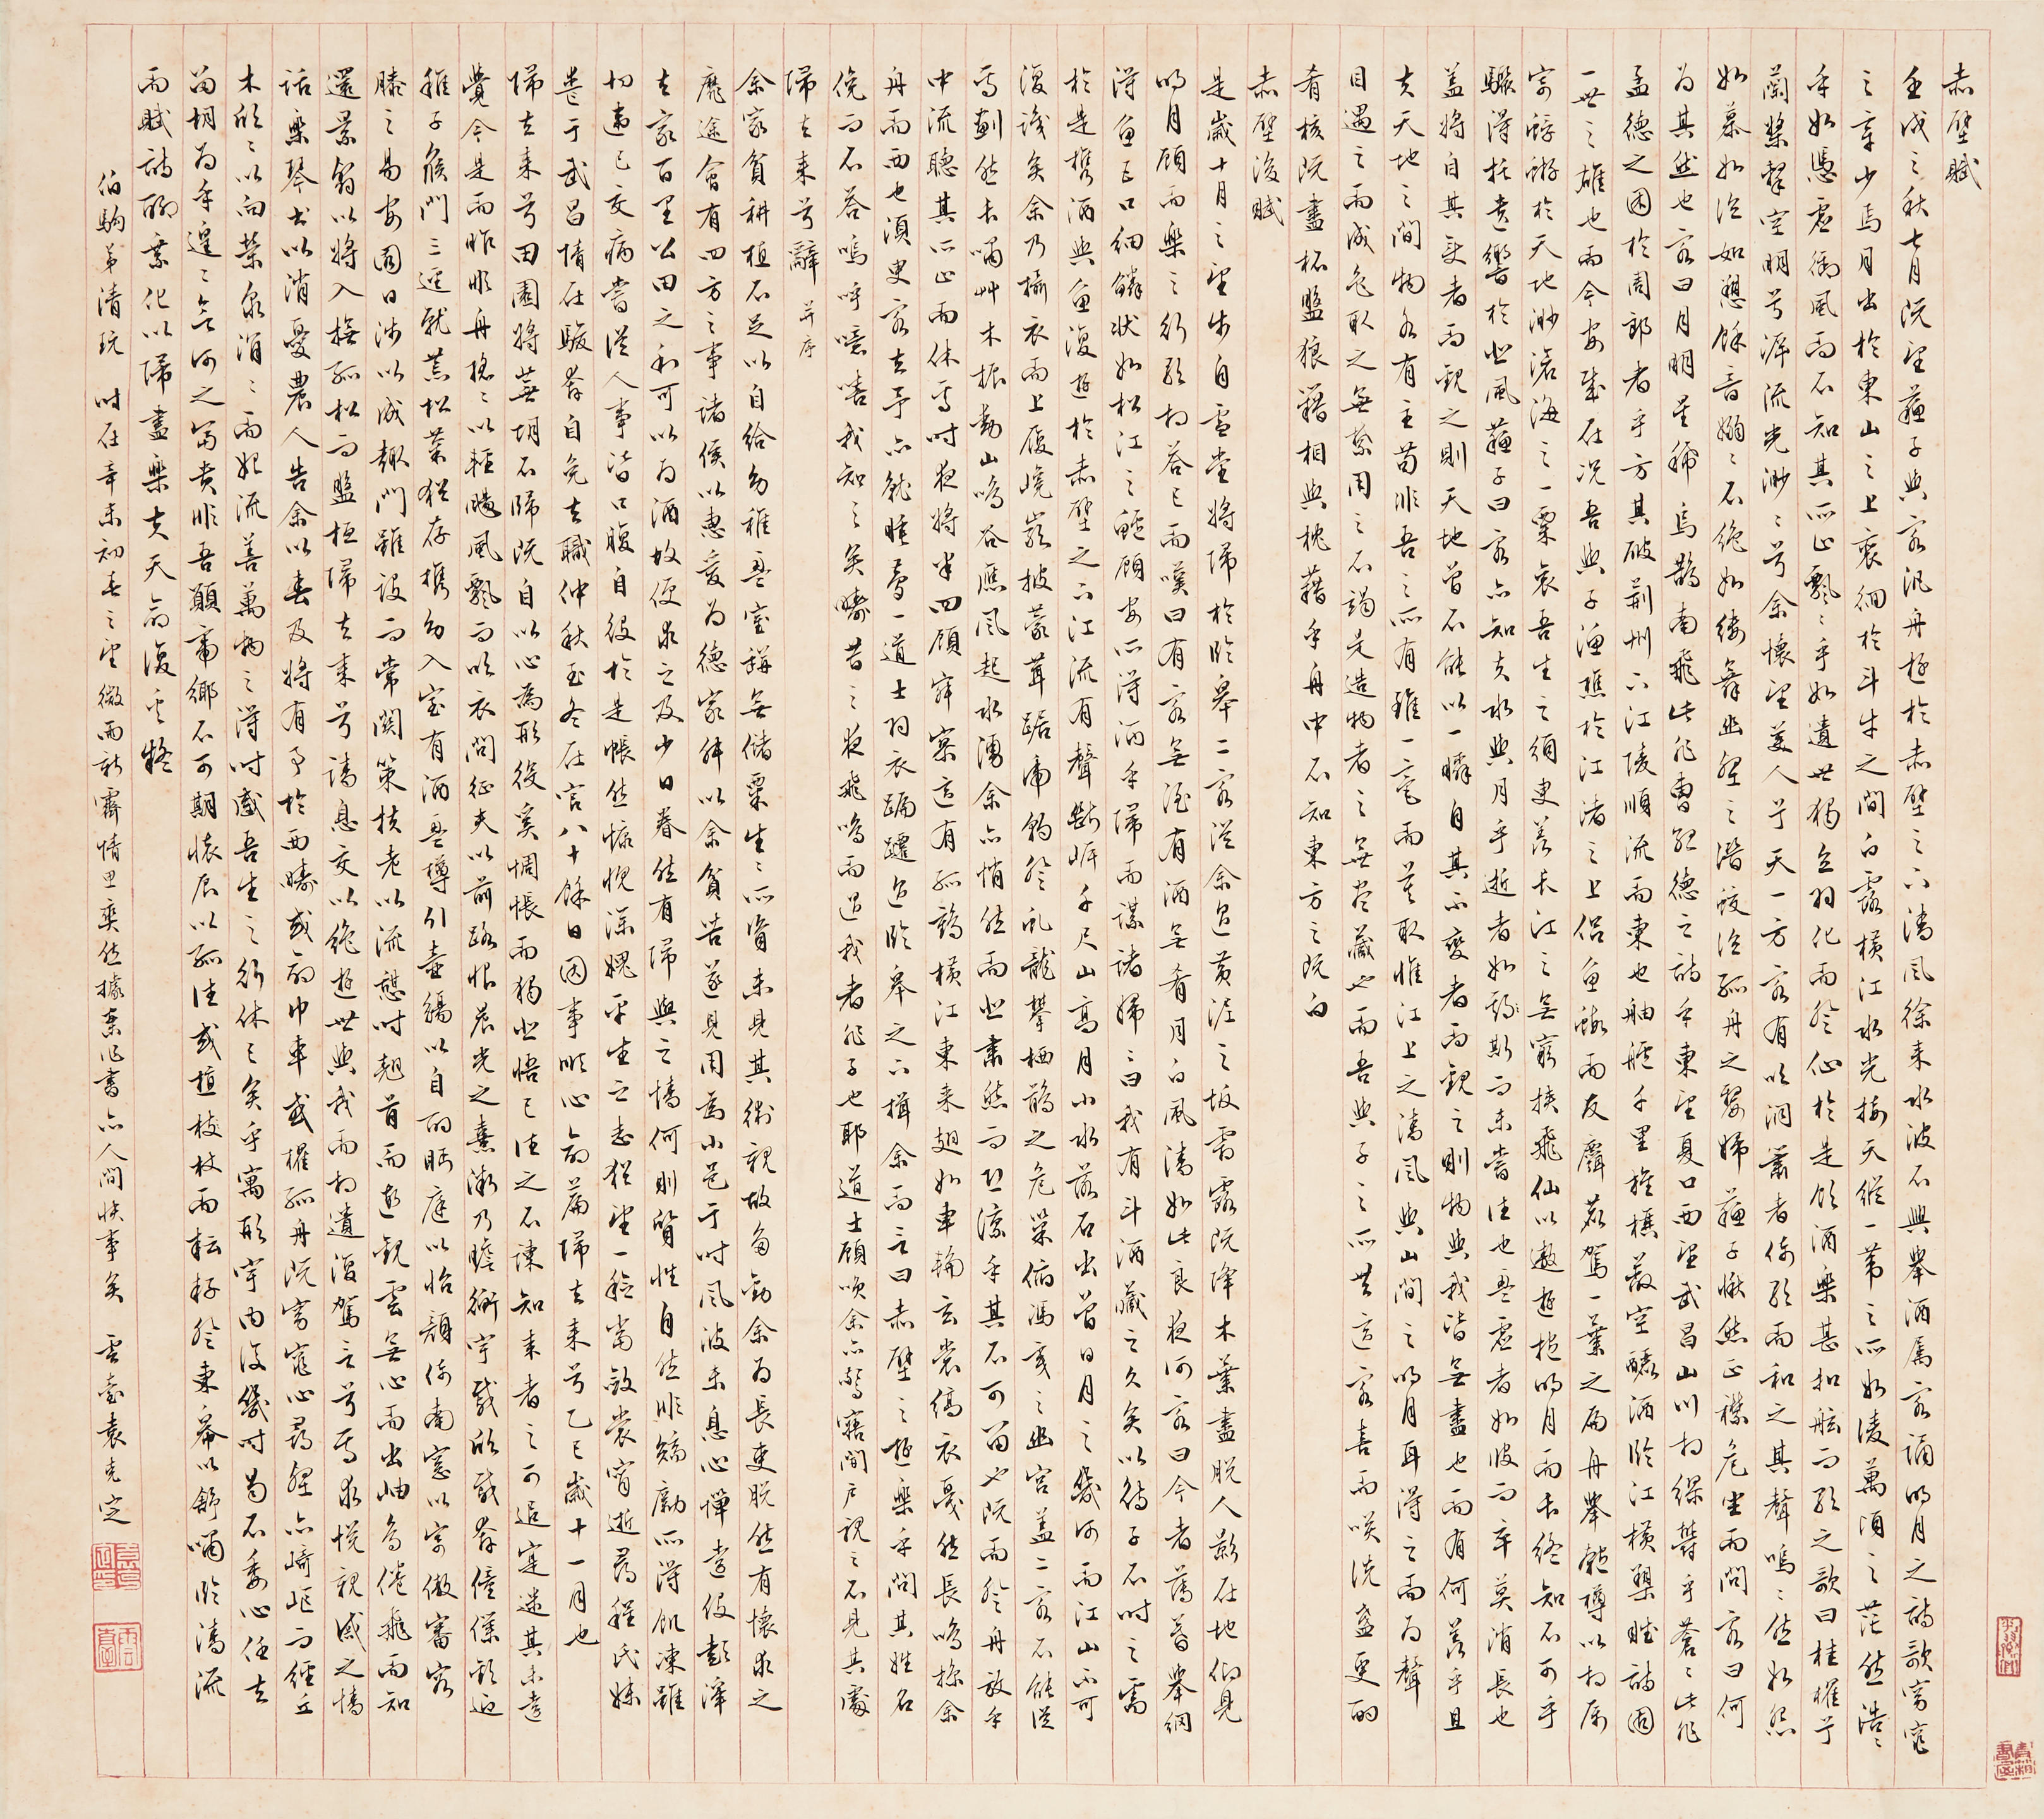 赤壁賦
壬戌之秋七月既望蘇子與客汎舟遊於赤壁之下清風徐來水波不興舉酒属客誦明月之詩歌窈窕
之章少焉月出於東山之上裵徊於斗牛之間白露橫江水光接天縱一葦之所如凌萬頃之茫然浩〻
乎如憑虛御風而不知其所止飄〻乎如遺世獨立羽化而登仙於是飲酒樂甚扣舷而歌之歌曰桂櫂兮
蘭槳擊空明兮泝流光渺〻兮余懷望美人兮天一方客有吹洞簫者倚歌而和之其聲嗚〻然如怨
如慕如泣如愬餘音嫋〻不絶如縷舞幽壑之潛蛟泣孤舟之嫠婦蘇子愀然正襟危坐而問客曰何
為其然也客曰月明星稀烏鵲南飛此非曹孟德之詩乎東望夏口西望武昌山川相繆鬱乎蒼〻此非
孟德之困於周郎者乎方其破荊州下江陵順流而東也舳艫千里旌旗蔽空釃酒臨江橫槊賦詩固
一世之雄也而今安在哉况吾與子漁樵於江渚之上侶魚蝦而友麋鹿駕一葉之扁舟舉匏樽以相屬
寄蜉蝣於天地渺滄海之一粟哀吾生之須臾羨長江之無窮挾飛仙以遨遊抱明月而長終知不可乎
驟得托遺響於悲風蘇子曰客亦知夫水與月乎逝者如斯而未嘗往也盈虛者如彼而卒莫消長也
盖將自其變者而觀之則天地曾不能以一瞬自其不變者而觀之則物與我皆無盡也而有何羨乎且
夫天地之間物各有主苟非吾之所有雖一毫而莫取惟江上之清風與山間之明月耳得之而為聲
目遇之而成色取之無禁用之不竭是造物者之無盡藏也而吾與子之所共適客喜而笑洗盞更酌
肴核既盡杯盤狼籍相與枕藉乎舟中不知東方之既白
赤壁後賦
是歲十月之望步自雪堂將歸於臨皋二客從余過黃泥之坂霜露既降木葉盡脱人影在地仰見
明月顧而樂之行歌相答已而嘆曰有客無酒有酒無肴月白風清如此良夜何客曰今者薄暮舉網
得魚巨口細鱗狀如松江之鱸顧安所得酒乎歸而謀諸婦〻曰我有斗酒藏之久矣以待子不時之需
於是携酒與魚復遊於赤壁之下江流有聲斷岸千尺山高月小水落石出曾日月之幾何而江山不可
復識矣余乃攝衣而上履巉巖披蒙茸踞虎豹登虬龍攀栖鶻之危巢俯馮夷之幽宮盖二客不能從
焉劃然長嘯艸木振動山鳴谷應風起水湧余亦悄然而悲肅然而恐凜乎其不可留也既而登舟放乎
中流聽其所止而休焉時夜將半四顧寂寥適有孤鶴橫江東來翅如車輪玄裳縞衣戛然長鳴掠余
舟而西也須臾客去予亦就睡夢一道士羽衣蹁躚過臨皋之下揖余而言曰赤壁之遊樂乎問其姓名
俛而不答嗚呼噫嘻我知之矣疇昔之夜飛鳴而過我者非子也耶道士顧咲余亦驚寤開戶視之不見其處
歸去來兮辭 并序
余家貧耕植不足以自給幼稚盈室缾無儲粟生〻所資未見其術親故多勸余為長吏脱然有懷求之
靡途會有四方之事諸侯以惠愛為德家叔以余貧苦遂見用為小邑于時風波未息心憚遠役彭澤
去家百里公田之利可以為酒故便求之及少日眷然有歸與之情何則質性自然非矯勵所得飢凍雖
切違己交病嘗從人事皆口腹自役於是悵然慷慨深媿平生之志猶望一稔當斂裳宵逝尋程氏妹
喪于武昌情在駿奔自免去職仲秋至冬在官八十餘日因事順心命篇歸去來兮乙巳歲十一月也
歸去來兮田園將蕪胡不歸既自以心為形役奚惆悵而獨悲悟已往之不諫知來者之可追寔迷其未遠
覺今是而昨非舟搖〻以輕颺風飄而吹衣問征夫以前路恨晨光之熹微乃瞻衡宇載欣載奔僮僕歡迎
稚子候門三逕就荒松菊猶存携幼入室有酒盈樽引壺觴以自酌眄庭以怡顏倚南窓以寄傲審容
膝之易安園日涉以成趣門雖設而常関策扶老以流憩時翹首而遊觀雲無心而出岫鳥倦飛而知
還景翳以將入撫孤松而盤桓歸去來兮請息交以絶遊世與我而相遺復駕言兮焉求悅親戚之情
話樂琴書以消憂農人告余以春及將有事於西疇或命巾車或櫂孤舟既窈窕心尋壑亦崎嶇而經丘
木欣〻以向榮泉涓〻而始流善萬物之得時感吾生之行休已矣乎寓形宇內復幾時曷不委心任去
留胡為乎遑〻兮何之富貴非吾願帝鄉不可期懷良以孤往或植杖而耘耔登東皋以舒嘯臨清流
而賦詩聊乘化以歸盡樂夫天命復奚疑
伯駒弟清玩 時在辛未初春之望微雨新霽情思奕然據案作書亦人間快事矣 雲臺袁克定
袁克定印
雲臺